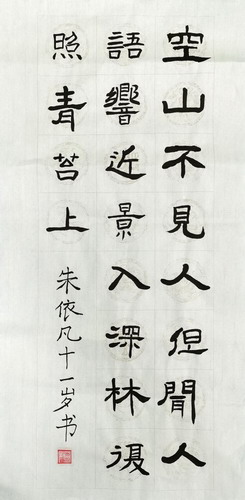 空山不見人但聞人
語響近景入深林復
照青苔上
朱依凡十一岁书